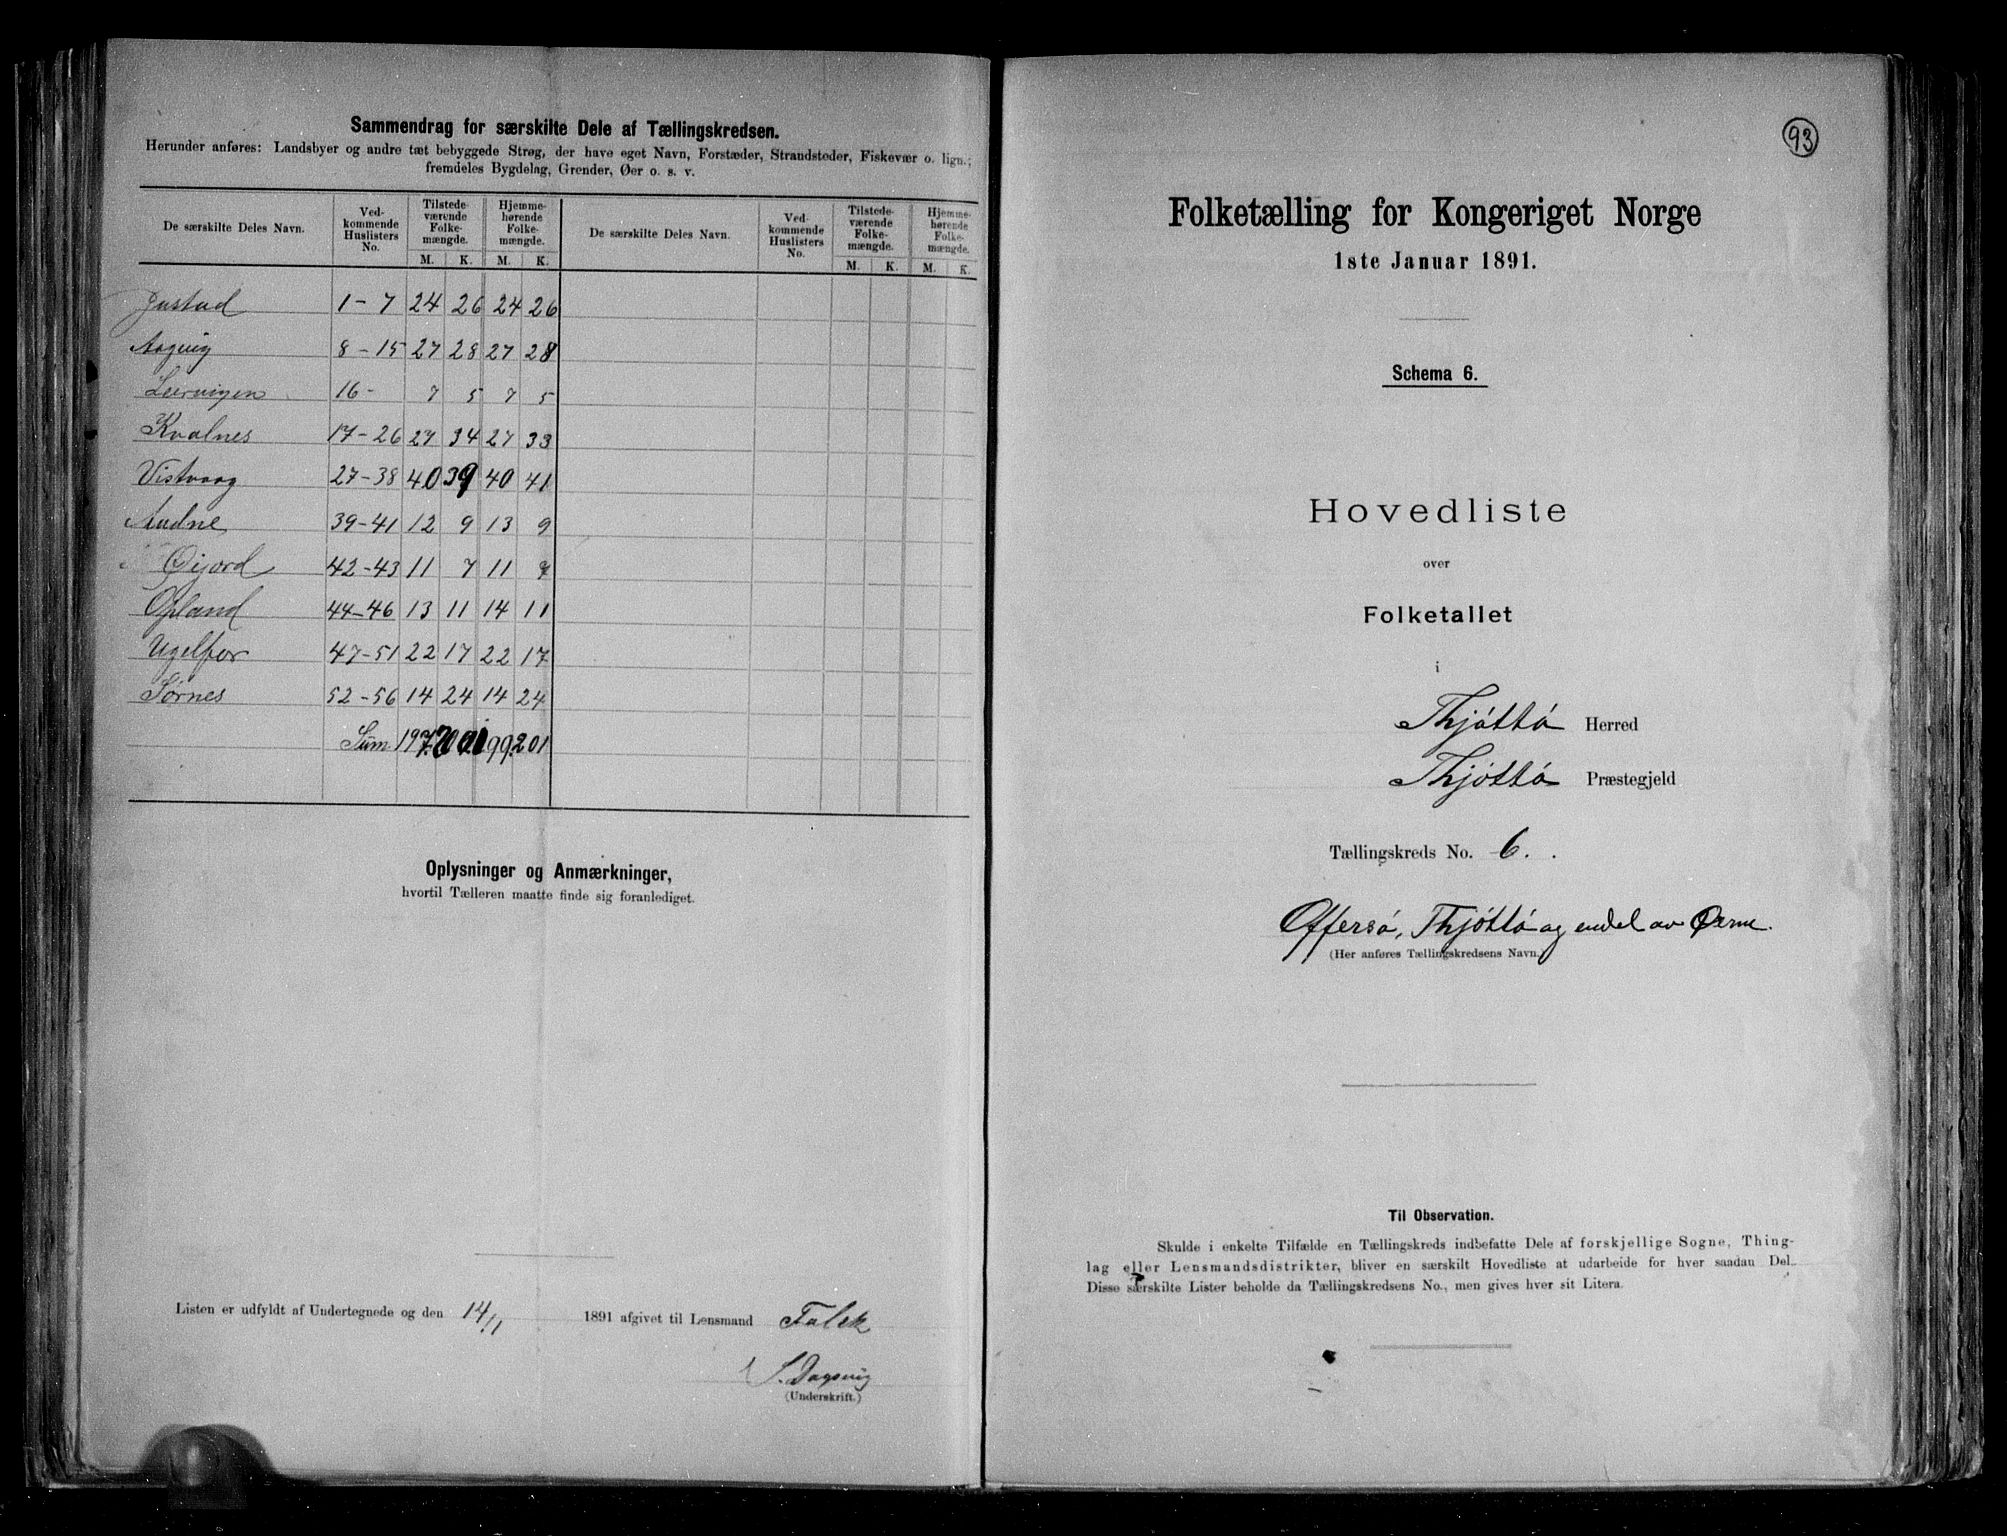 Sammendrag for særskilte Dele af Tællingskredsen.
Herunder anføres: Landsbyer og andre tæt bebyggede Strøg, der have eget Navn, Forstæder, Strandsteder, Fiskevær o. lign.;
fremdeles Bygdelag, Grender, Øer o. s. v.
De særskilte Deles Navn. Ved-kommende Huslisters No. Tilstede-værende Folke-mængde. Hjemme-hørende Folke-mængde. De særskilte Deles Navn. Ved-kommende Huslisters No. Tilstede-værende Folke-mængde. Hjemme-hørende Folke-mængde.
M. K. M. K. M. K. M. K.
Justad 1-7 24 26 24 26
Aagvig 8-15 27 28 27 28
Leervigen 16- 7 5 7 5
Kvalnes 17-26 27 34 27 33
Vistvaag 27-38 40 39 40 41
Audne 39-41 12 9 13 9
Øijord 42-43 11 7 11 7
Opland 44-46 13 11 14 11
Ugelfor 47-51 22 17 22 17
Sørnes 52-56 14 24 14 24
Sum 197 199 201
Oplysninger og Anmærkninger,
hvortil Tælleren maatte finde sig foranlediget.
Listen er udfyldt af Undertegnede og den 14/1 1891 afgivet til Lensmand Falck
S. Dagsvig
(Underskrift.)
93
Folketælling for Kongeriget Norge
1ste Januar 1891.
Schema 6.
Hovedliste
over
Folketallet
i
Thjøttø Herred
Thjøttø Præstegjeld
Tællingskreds No. 6.
Offersø, Thjøttø og endel av Øerne.
(Her anføres Tællingskredsens Navn.)
Til Observation.
Skulde i enkelte Tilfælde en Tællingskreds indbefatte Dele af forskjellige Sogne, Thing-
lag eller Lensmandsdistrikter, bliver en særskilt Hovedliste at udarbeide for hver saadan Del.
Disse særskilte Lister beholde da Tællingskredsens No., men gives hver sit Litera.